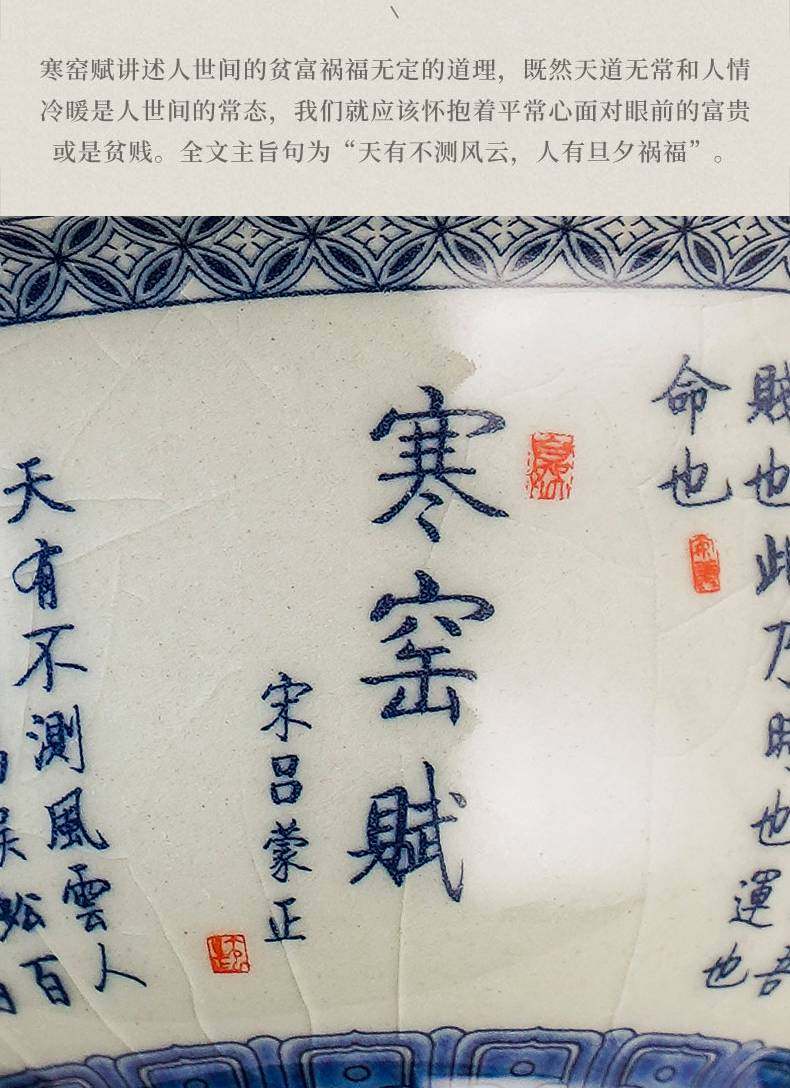 寒窑赋讲述人世间的贫富祸福无定的道理，既然天道无常和人情
冷暖是人世间的常态，我们就应该怀抱着平常心面对眼前的富贵
或是贫贱。全文主旨句为“天有不测风云，人有旦夕祸福”。
賤也此乃時也運也
命也
寒窑賦
宋吕蒙正
天有不測風雲人
蚣百